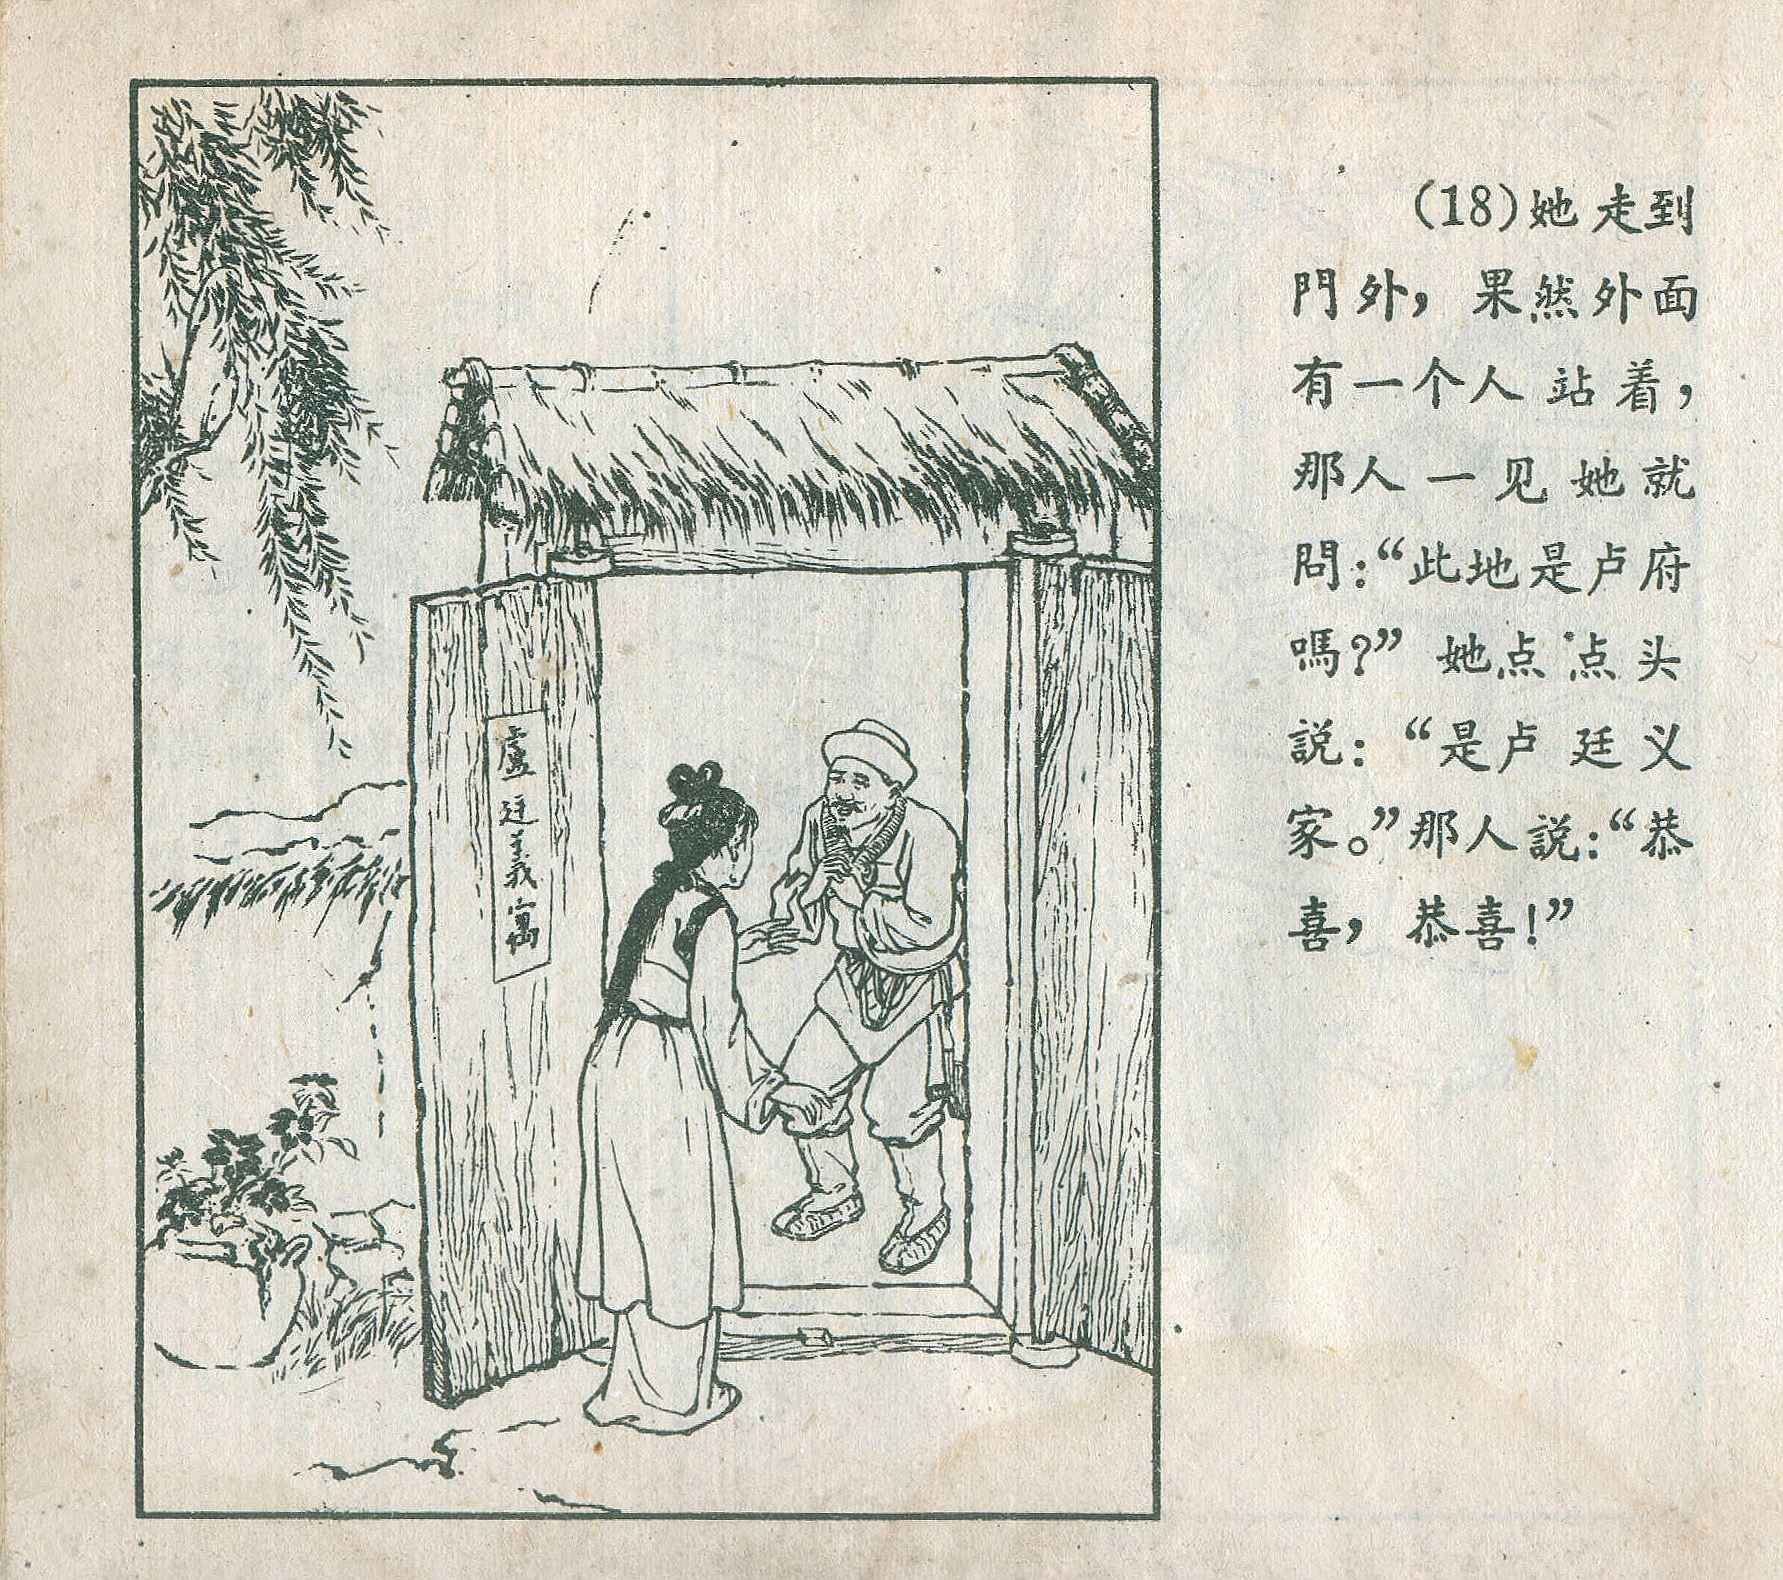 盧廷義寓
(18)她走到
門外，果然外面
有一个人站着，
那人一见她就
問：“此地是卢府
嗎？”她点点头
説：“是卢廷义
家。”那人説：“恭
喜，恭喜！”